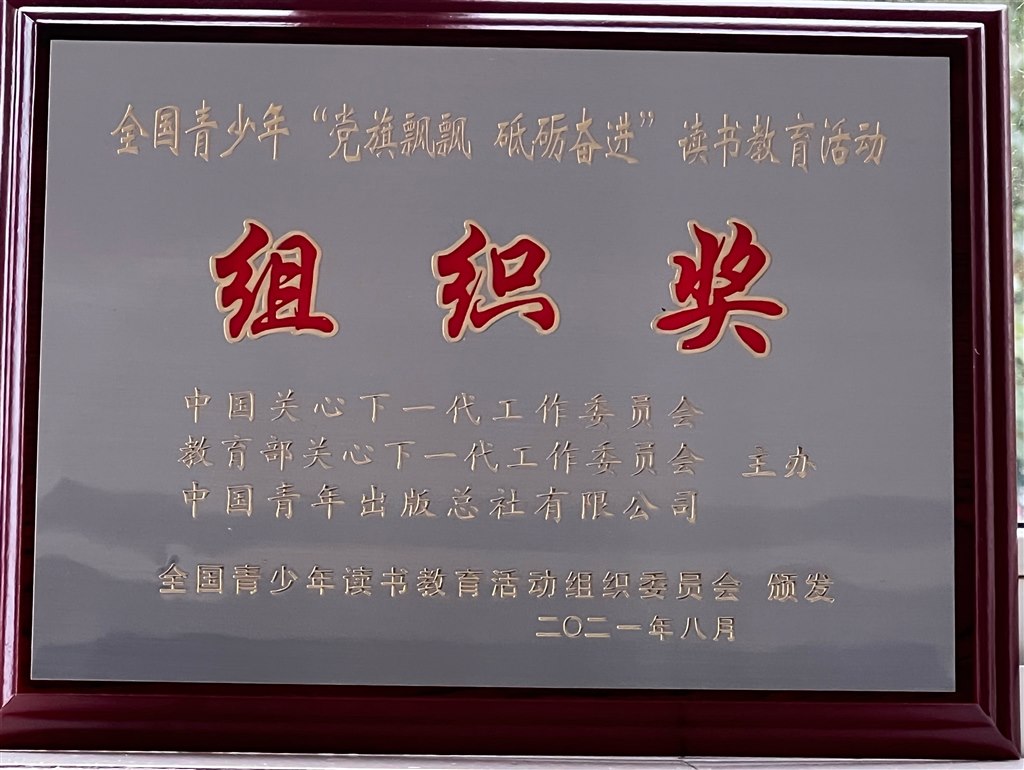 全国青少年“党旗飘飘 砥砺奋进”读书教育活动
组织奖
中国关心下一代工作委员会
教育部关心下一代工作委员会 主办
中国青年出版总社有限公司
全国青少年读书教育活动组织委员会 颁发
二〇二一年八月